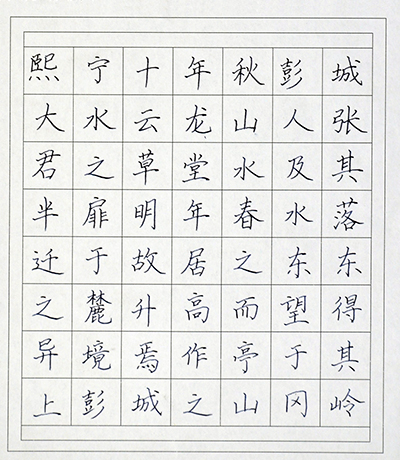 熙宁十年秋彭城
大水云龙山人张
君之草堂水及其
半扉明年春水落
迁于故居之东东
之麓升高而望得
异境焉作亭于其
上彭城之山冈岭